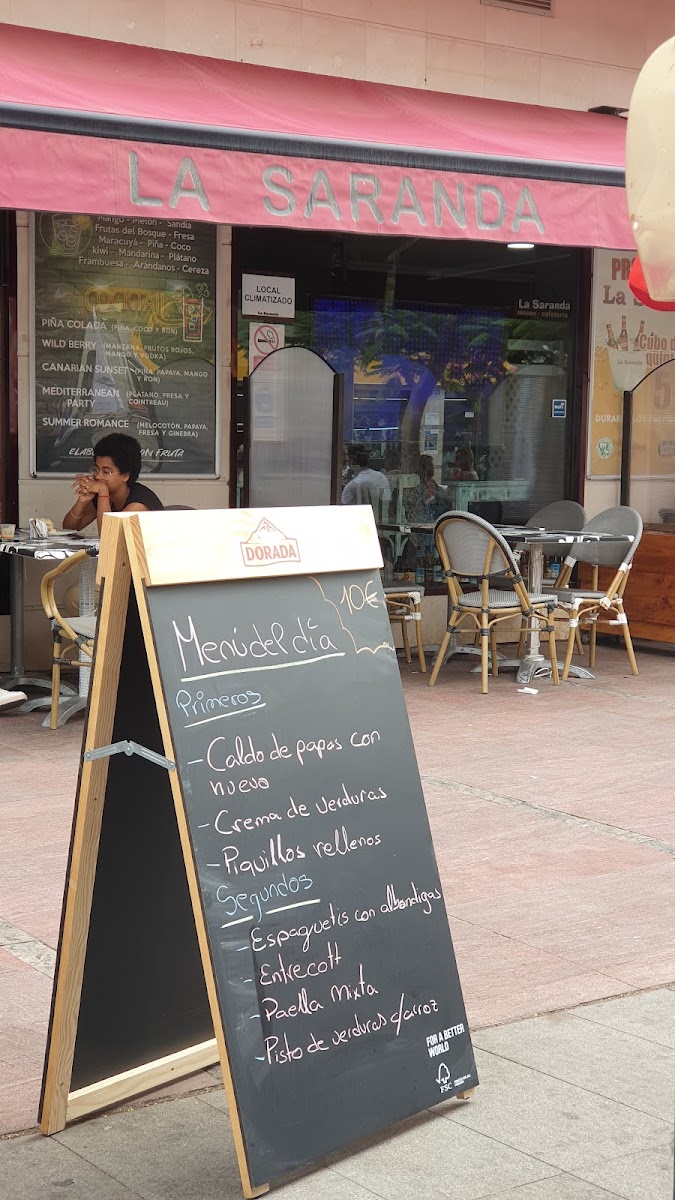 LA SARANDA
Mango - Melón - Sandía
Frutas del Bosque - Fresa
Maracuyá - Piña - Coco
kiwi - Mandarina - Plátano
Frambuesa - Arándanos - Cereza
COCKTAIL
PIÑA COLADA (PIÑA, COCO Y RON)
WILD BERRY (MANZANA, FRUTOS ROJOS, MANGO Y VODKA)
CANARIAN SUNSET (PIÑA, PAPAYA, MANGO Y RON)
MEDITERRANEAN PARTY (PLÁTANO, FRESA Y COINTREAU)
SUMMER ROMANCE (MELOCOTÓN, PAPAYA, FRESA Y GINEBRA)
LOCAL
CLIMATIZADO
La Saranda
La Saranda
Cubo
5
DORADA
Menú del día 10€
Primeros
- Caldo de papas con
huevo
- Crema de verduras
- Piquillos rellenos
Segundos
- Espaguetis con albondigas
- Entrecott
- Paella Mixta
- Pisto de verduras c/arroz
FOR A BETTER
WORLD
FSC